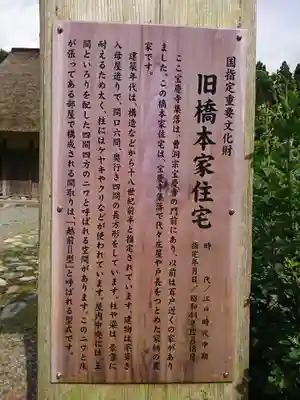 国指定重要文化財
旧橋本家住宅
時 代／江戸時代中期
指定年月日／昭和44年12月18日
ここ宝慶寺集落は、曹洞宗宝慶寺の門前にあり、以前は百戸近くの家があり
ました。この橋本家住宅は、宝慶寺集落で代々庄屋や戸長をつとめた家柄の農
家です。
建築年代は、構造などから十八世紀前半と推定されています。建物は茅葺き
入母屋造りで、間口六間、奥行き四間の長方形をしています。柱や梁は、豪雪に
耐えるため太く、柱にはケヤキやクリなどが使われています。屋内中央には、土
間といろりを配した四間四方のニワと呼ばれる空間があります。このニワと床
が張ってある部屋で構成される間取りは、「越前Ⅱ型」と呼ばれる型式です。